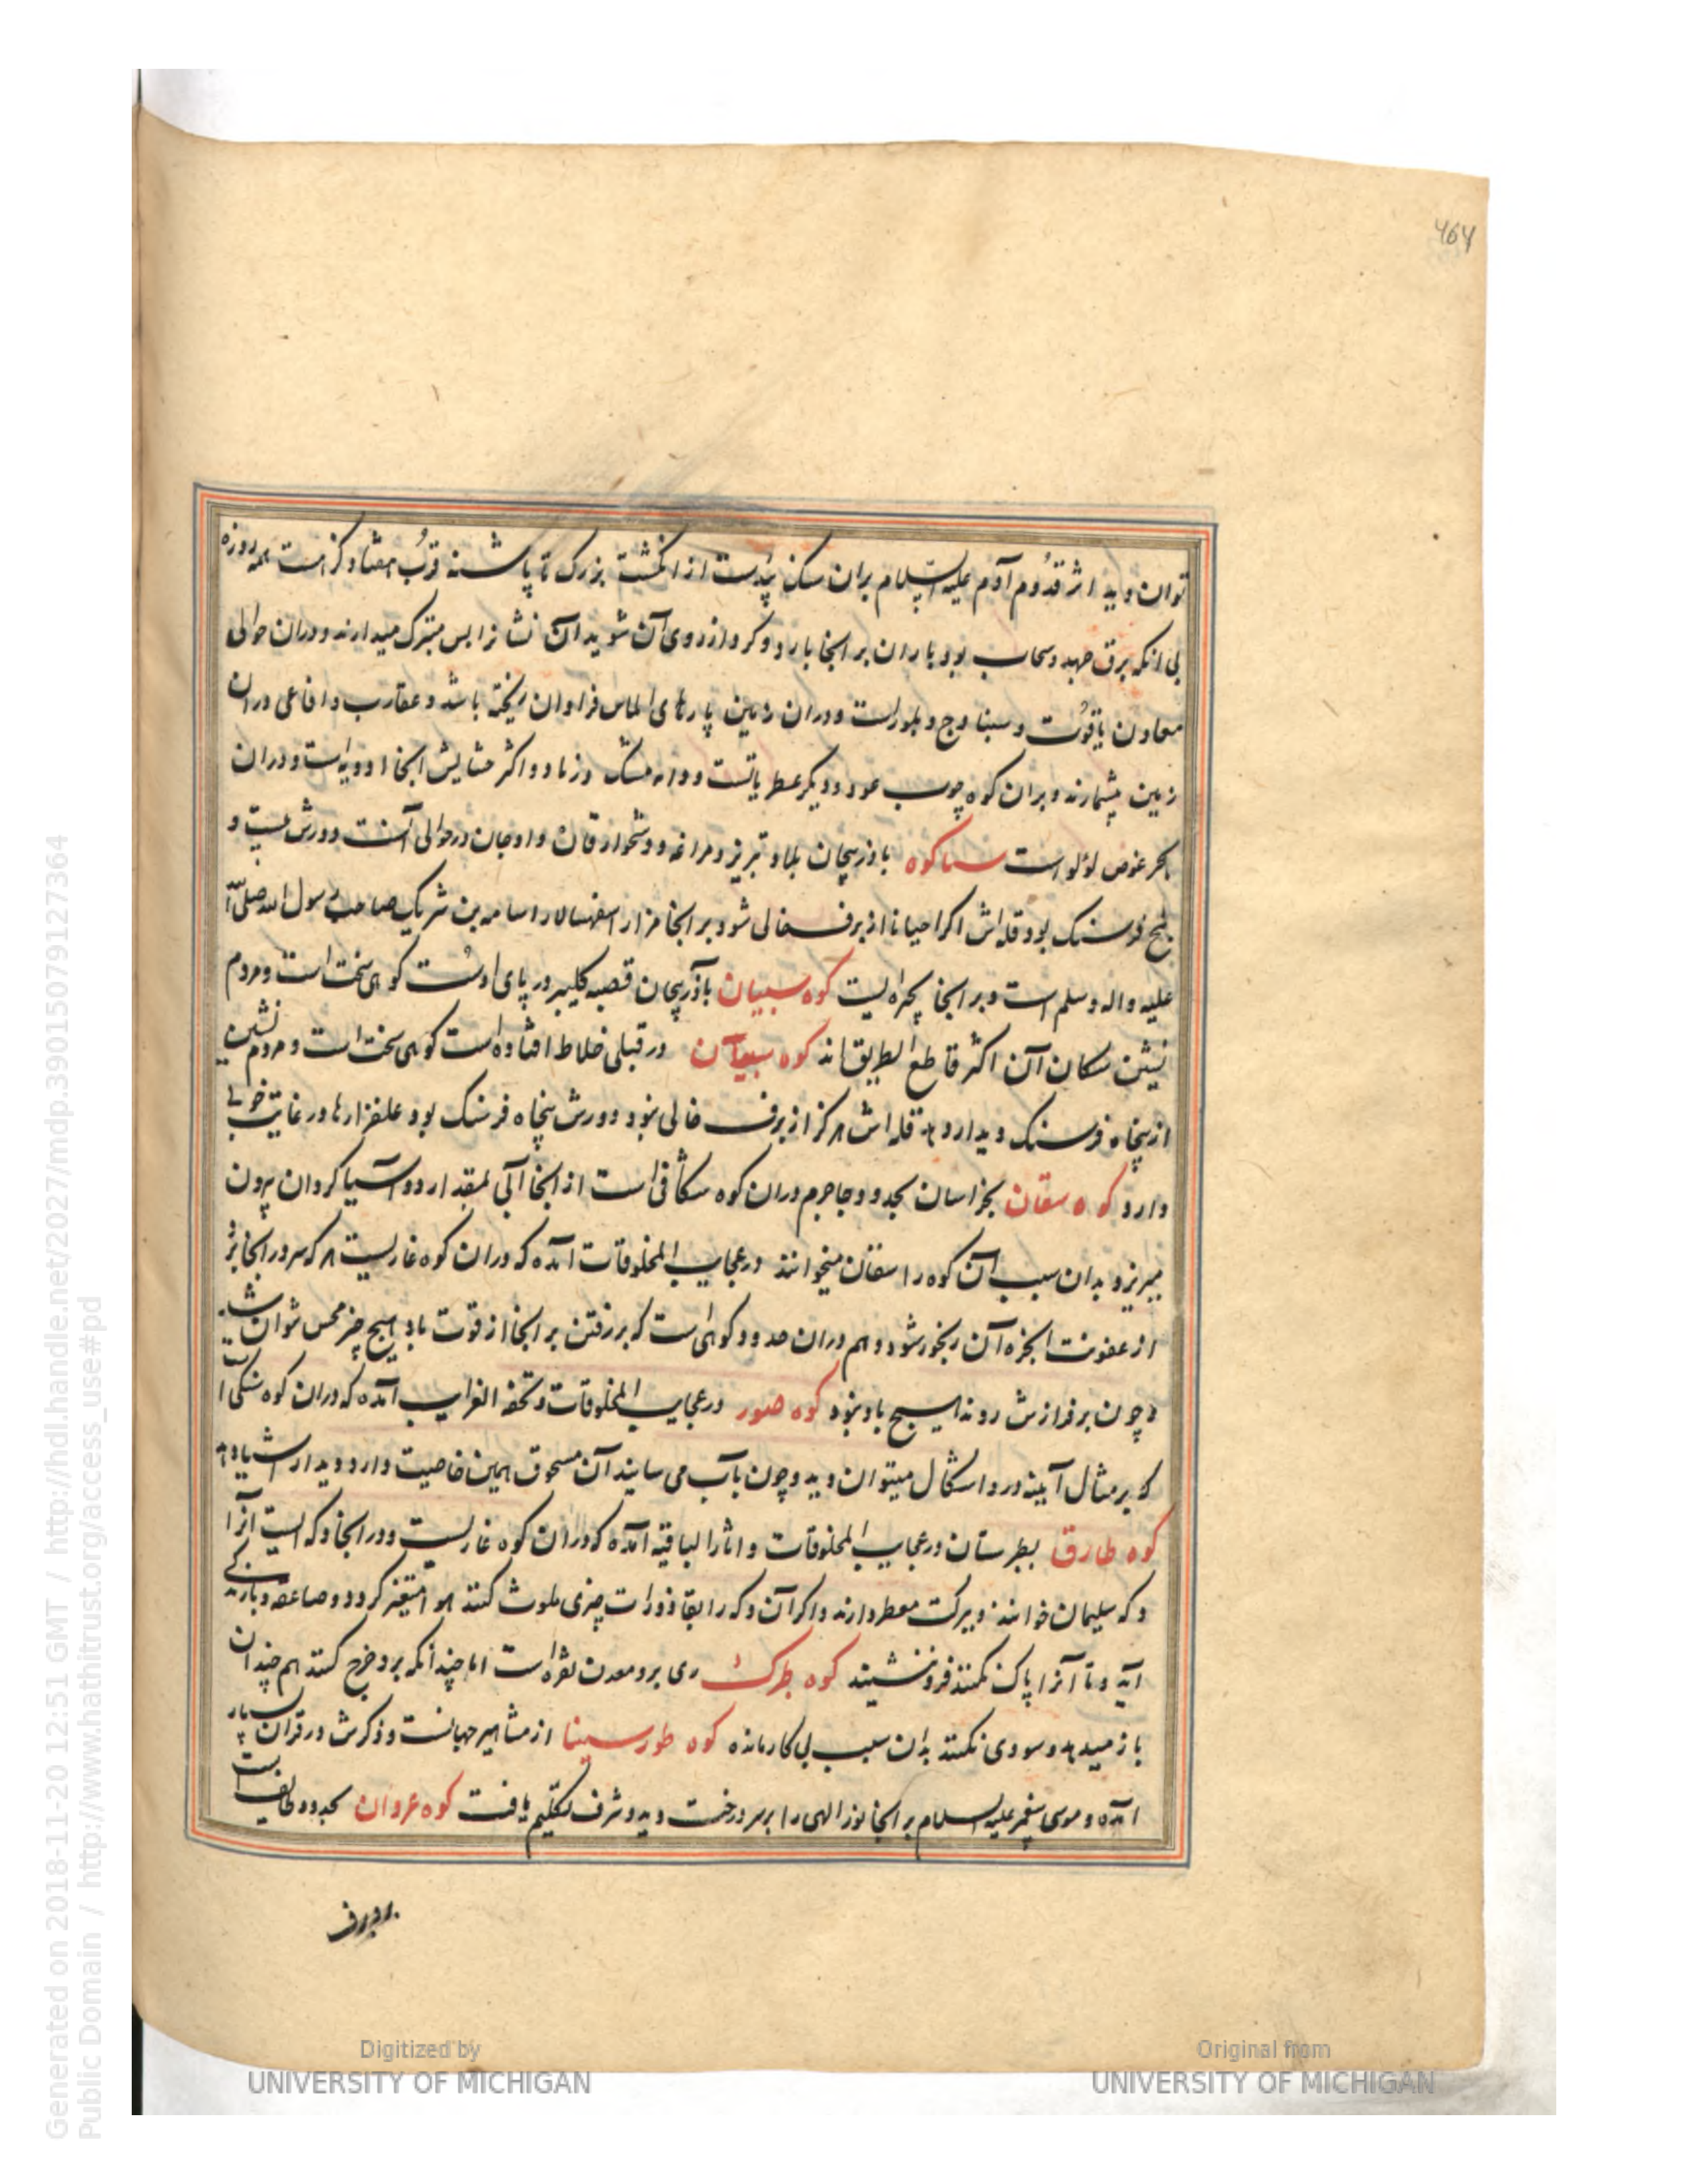 464
توان دید اثر قدوم آدم علیه السلام بران سنک پیداست از انکشت بزرک تا پاشنه قرب هفتاد کز است همه روزه
بی انکه برق جهد و سحاب بود باران بر انجا بارد و کرد از روی آن شوید آن نشانرا بس متبرک میدارند و دران حوالی
معادن یاقوت و سنباوج و بلور است و دران زمین پارهای الماس فراوان ریخته باشد و عقارب و افاعی دران
زمین بیشمارند و بران کوه چوب عود و دیکر عطریاتست و دابه مشک و زباد و اکثر حشایش انجا ادویه است و دران
بحر غوص لؤلو است سیاکوه باذربیجان بلاد تبریز و مراغه و دشخوارقان و اوجان در حوالی آنست دورش بیست و
پنج فرسنک بود قله اش اکر احیانا از برف خالی شود بر انجا مزار اسفهسالار اسامه بن شریک صاحب رسول الله صلی الله
علیه و اله و سلم است و بر انجا بحیره ایست کوه سبیان باذربیجان قصبه کلیبر در پای اوست کوهی سخت است و مردم
نشین سکان آن اکثر قاطع الطریق اند کوه سیعان در قبلی خلاط افتاده است کوهی سخت است و مردم نشین
از پنجاه فرسنک دیدار دهد قله اش هرکز از برف خالی نبود دورش پنجاه فرسنک بود علفزارها در غایت خوبی
دارد کوه سقان بخراسان بحدود جاجرم دران کوه شکافی است از انجا آبی بمقدار دو آسیا کردان بیرون
میریزد بدان سبب آن کوه را سقان میخوانند در عجایب المخلوقات آمده که دران کوه غاریست هر که سر در انجا برد
از عفونت ابخره آن رنجور شود و هم دران حدود کوهی است که بر رفتن بر انجا از قوت باد هیچ چیز محس نتوان شنید
و چون بر فرازش روند هیچ باد نبود کوه صور در عجایب المخلوقات و تحفه الغرایب آمده که دران کوه سنکی است
که بر مثال آیینه درو اشکال میتوان دید و چون بآب می سایند آن مسحوق همین خاصیت دارد و دیدار اشیا دهد
کوه طارق بطبرستان در عجایب المخلوقات و اثار الباقیه آمده که دران کوه غاریست و در انجا دکه ایست آنرا
دکه سلیمان خوانند و ببرکت معطر دارند و اکر آن دکه را بقاذورات چیزی ملوث کنند هوا متغیر کردد و صاعقه و بارندکی
آید و تا آنرا پاک نکنند فرو ننشیند کوه طبرک ری برو معدن نقره است اما چندانکه برو خرج کنند هم چندان
باز میدهد و سودی نکند بدان سبب بی کار مانده کوه طور سینا از مشاهیر جهانست و ذکرش در قران بسیار
آمده و موسی پیغمبر علیه السلام بر انجا نور الهی را بر سر درخت دید و شرف تکلیم یافت کوه عروان بحدود طایف است
برو برف
Generated on 2018-11-20 12:51 GMT / http://hdl.handle.net/2027/mdp.39015079127364
Public Domain / http://www.hathitrust.org/access_use#pd
Digitized by
UNIVERSITY OF MICHIGAN
Original from
UNIVERSITY OF MICHIGAN